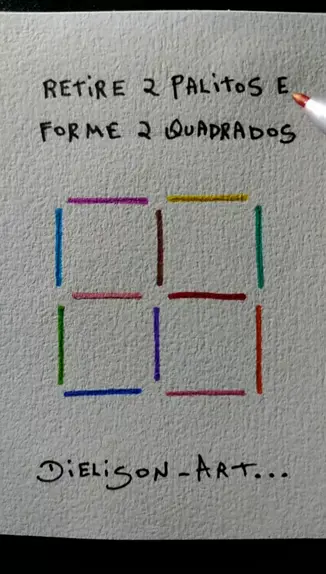 RETIRE 2 PALITOS E
FORME 2 QUADRADOS
DIELISON-ART...